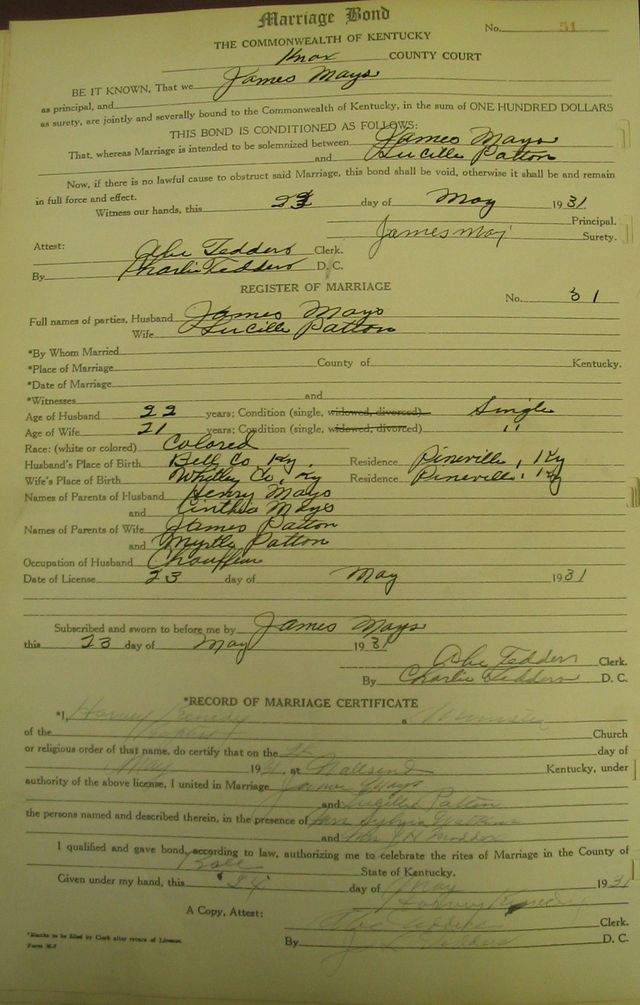 Marriage Bond
No. 51
THE COMMONWEALTH OF KENTUCKY
Knox COUNTY COURT
BE IT KNOWN, That we James Mays
as principal, and
as surety, are jointly and severally bound to the Commonwealth of Kentucky, in the sum of ONE HUNDRED DOLLARS
THIS BOND IS CONDITIONED AS FOLLOWS:
That, whereas Marriage is intended to be solemnized between James Mays
and Lucille Patton
Now, if there is no lawful cause to obstruct said Marriage, this bond shall be void, otherwise it shall be and remain
in full force and effect.
Witness our hands, this 23 day of May 1931
Principal.
James Mays Surety.
Attest: Abe Tedders Clerk.
By Charlie Tedders D. C.
REGISTER OF MARRIAGE
No. 31
Full names of parties, Husband James Mays
Wife Lucille Patton
*By Whom Married
*Place of Marriage County of Kentucky.
*Date of Marriage
*Witnesses and
Age of Husband 22 years; Condition (single, widowed, divorced) Single
Age of Wife 21 years; Condition (single, widowed, divorced) "
Race: (white or colored) Colored
Husband's Place of Birth Bell Co, Ky. Residence Pineville, Ky
Wife's Place of Birth Whitley Co, Ky Residence Pineville, Ky
Names of Parents of Husband Henry Mays
and Cinthia Mays
Names of Parents of Wife James Patton
and Myrtle Patton
Occupation of Husband Chauffeur
Date of License 23 day of May 1931
Subscribed and sworn to before me by James Mays
this 23 day of May 1931
Abe Tedders Clerk.
By Charlie Tedders D. C.
*RECORD OF MARRIAGE CERTIFICATE
*I, Harvey Kenedy a Minister
of the Baptist Church
or religious order of that name, do certify that on the 24 day of
May 1931, at Wallsend Kentucky, under
authority of the above license, I united in Marriage James Mays
and Lucille Patton
the persons named and described therein, in the presence of Mrs Sylvia Watkins
and Mrs J H
I qualified and gave bond, according to law, authorizing me to celebrate the rites of Marriage in the County of
Bell State of Kentucky.
Given under my hand, this 24 day of May 1931
Harvey Kenedy
A Copy, Attest: Abe Tedders Clerk.
By D. C.
*Blanks to be filled by Clerk after return of License.
Form M-F